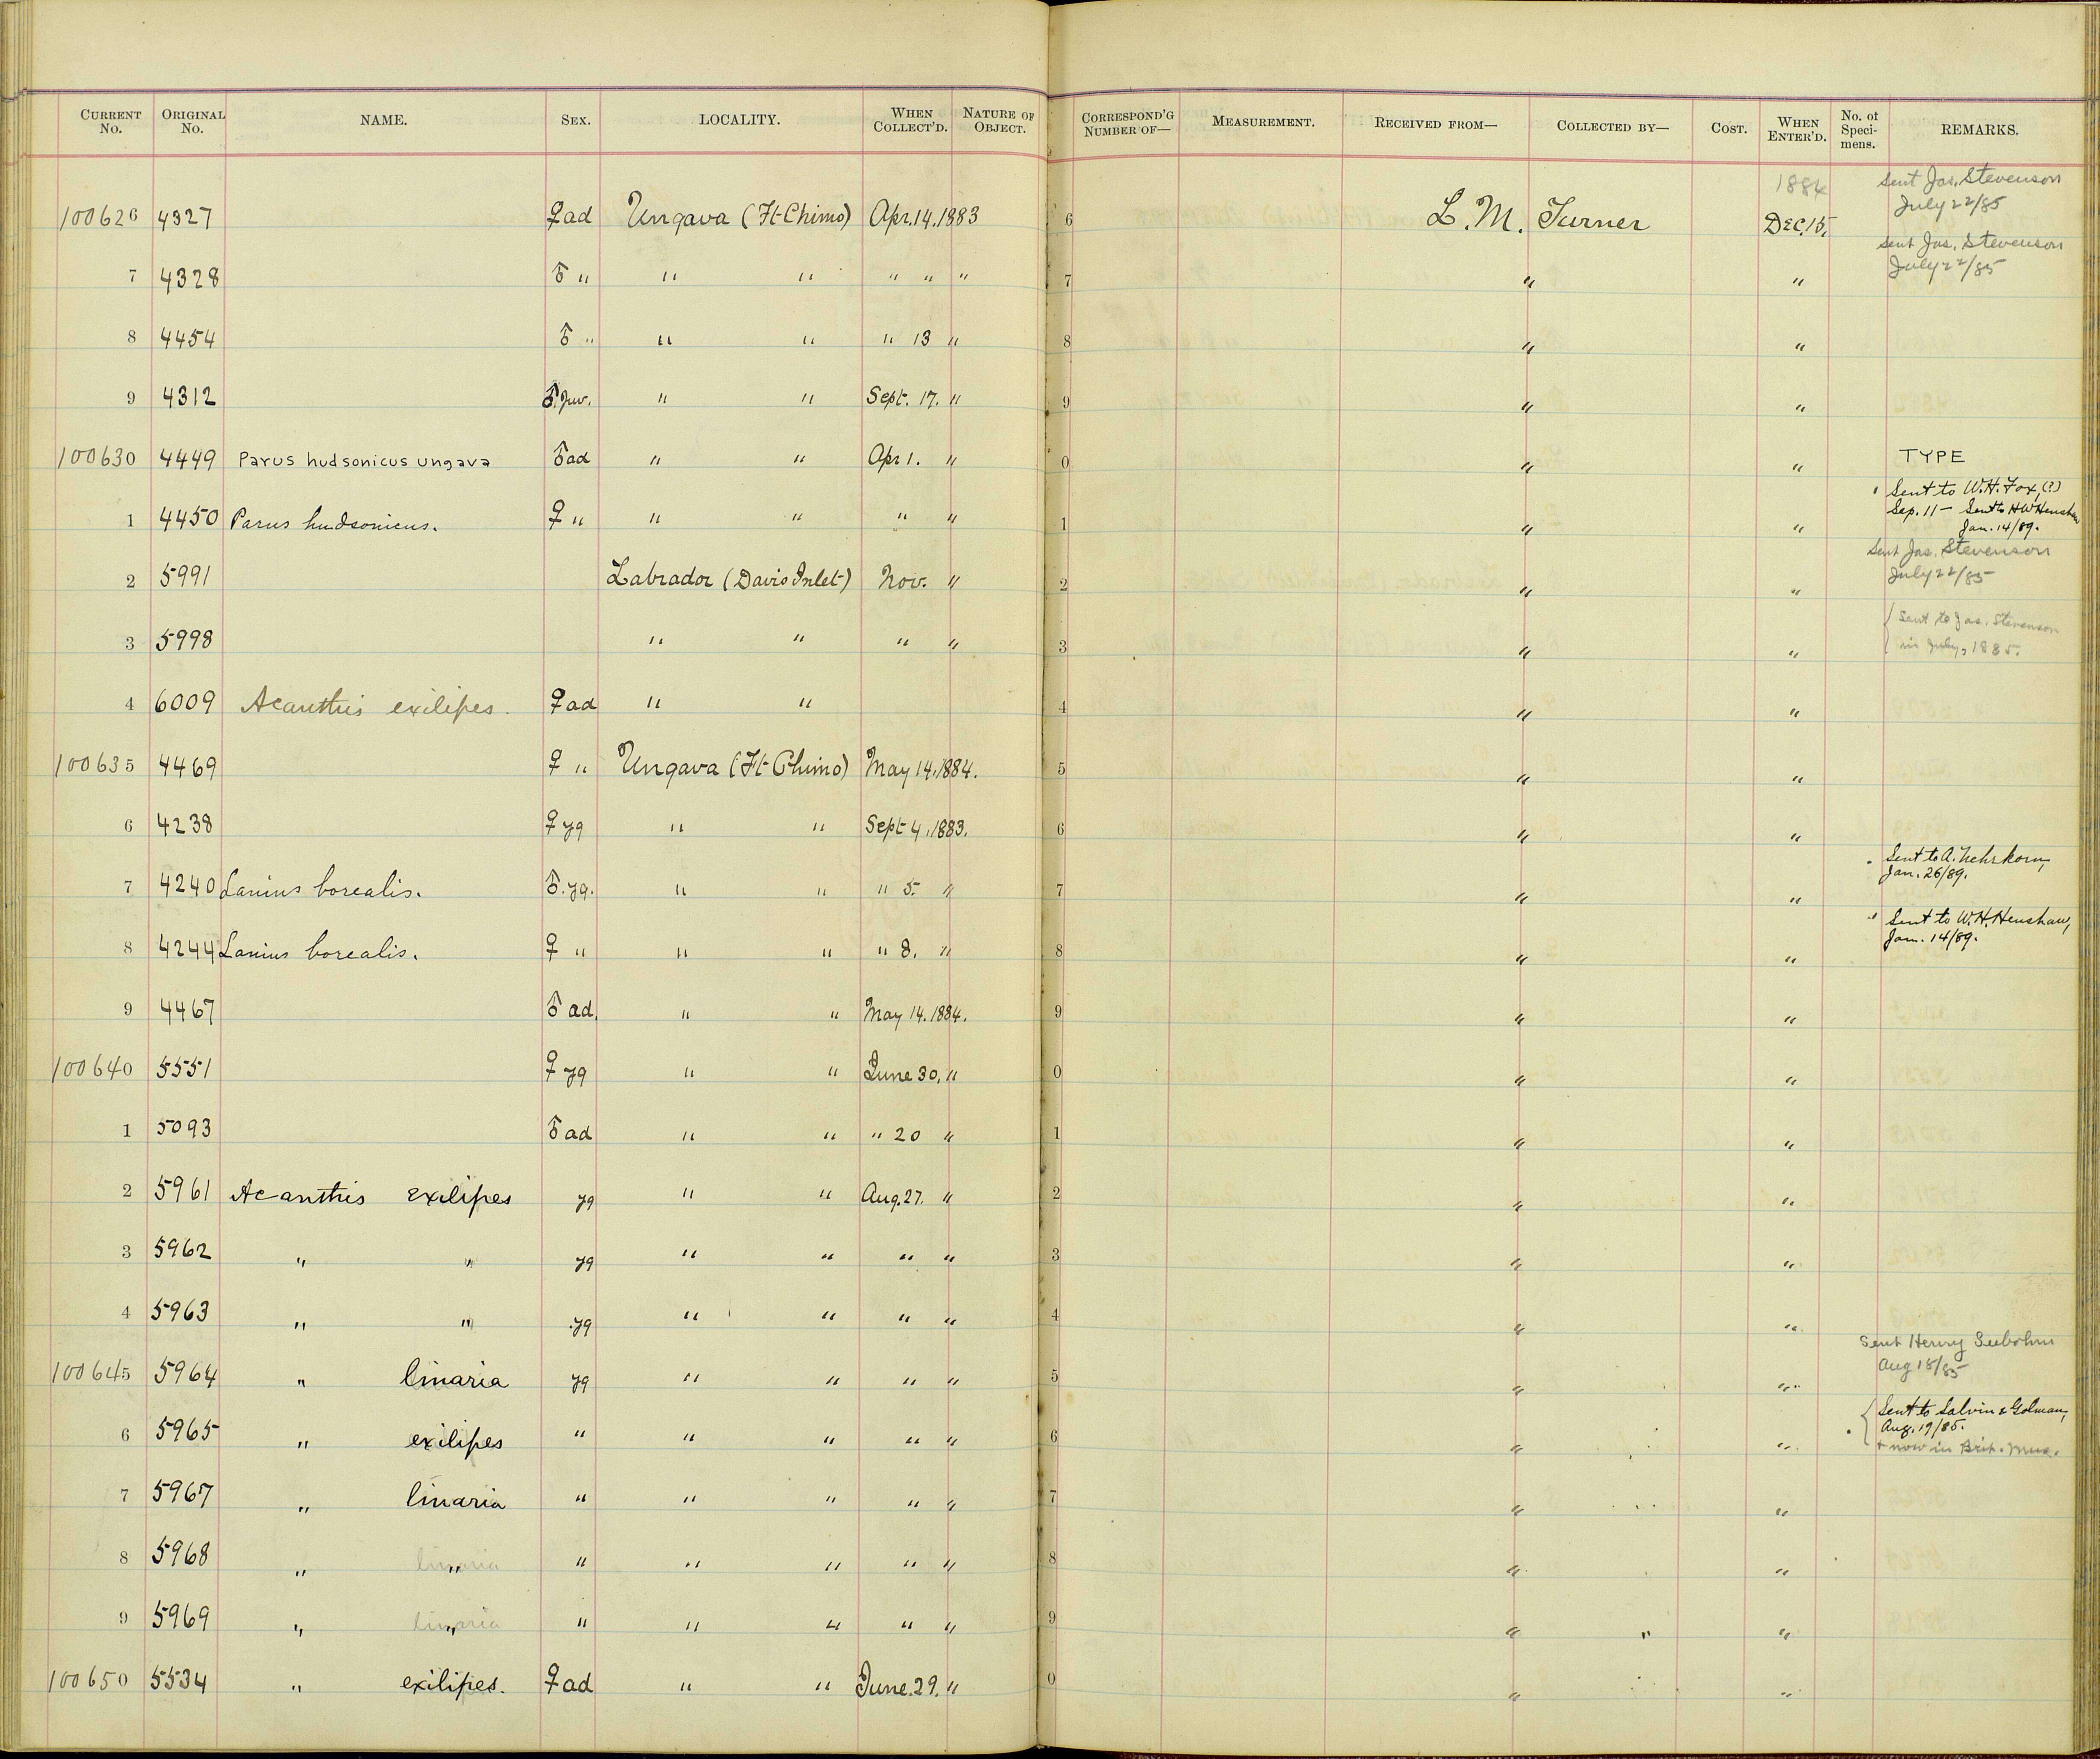 CURRENT No. ORIGINAL No. NAME. SEX. LOCALITY. WHEN COLLECT'D. NATURE OF OBJECT. CORRESPOND'G NUMBER OF— MEASUREMENT. RECEIVED FROM— COLLECTED BY— COST. WHEN ENTER'D. No. of Specimens. REMARKS.
100626 4327 ♀ ad Ungava (Ft Chimo) Apr. 14. 1883 6 L. M. Turner 1884 Dec. 15. Sent Jas. Stevenson July 22/85
7 4328 ♂ " " " " " " 7 " " Sent Jas. Stevenson July 22/85
8 4454 ♂ " " " " 13 " 8 " "
9 4312 ♂ Juv. " " Sept. 17. " 9 " "
100630 4449 Parus hudsonicus ungava ♂ ad " " Apr 1. " 0 " " TYPE
1 4450 Parus hudsonicus. ♀ " " " " " 1 " " Sent to W.H. Fox, (?) Sep. 11 — Sent to HW Henshaw Jan. 14/89.
2 5991 Labrador (Davis Inlet) Nov. " 2 " " Sent Jas. Stevenson July 22/85
3 5998 " " " " 3 " " { Sent to Jas. Stevenson in July, 1885.
4 6009 Acanthis exilipes. ♀ ad " " 4 " "
100635 4469 ♀ " Ungava (Ft Chimo) May 14. 1884. 5 " "
6 4238 ♀ yg " " Sept 4, 1883. 6 " "
7 4240 Lanius borealis. ♂. yg. " " " 5. " 7 " " Sent to A. Nehrkorn, Jan. 26/89.
8 4244 Lanius borealis. ♀ " " " " 8. " 8 " " Sent to W.H. Henshaw, Jan. 14/89.
9 4467 ♂ ad. " " May 14. 1884. 9 " "
100640 5551 ♀ yg " " June 30. " 0 " "
1 5093 ♂ ad " " " 20 " 1 " "
2 5961 Acanthis exilipes yg " " Aug. 27. " 2 " "
3 5962 " " yg " " " " 3 " "
4 5963 " " yg " " " " 4 " "
100645 5964 " linaria yg " " " " 5 " " Sent Henry Seebohm Aug 18/85
6 5965 " exilipes " " " " " 6 " " { Sent to Salvin & Godman, Aug. 19/85. + now in Brit. Mus.
7 5967 " linaria " " " " " 7 " "
8 5968 " linaria " " " " " " 8 " "
9 5969 " linaria " " " " " " 9 " " "
100650 5534 " exilipes. ♀ ad " " June. 29. " 0 " "